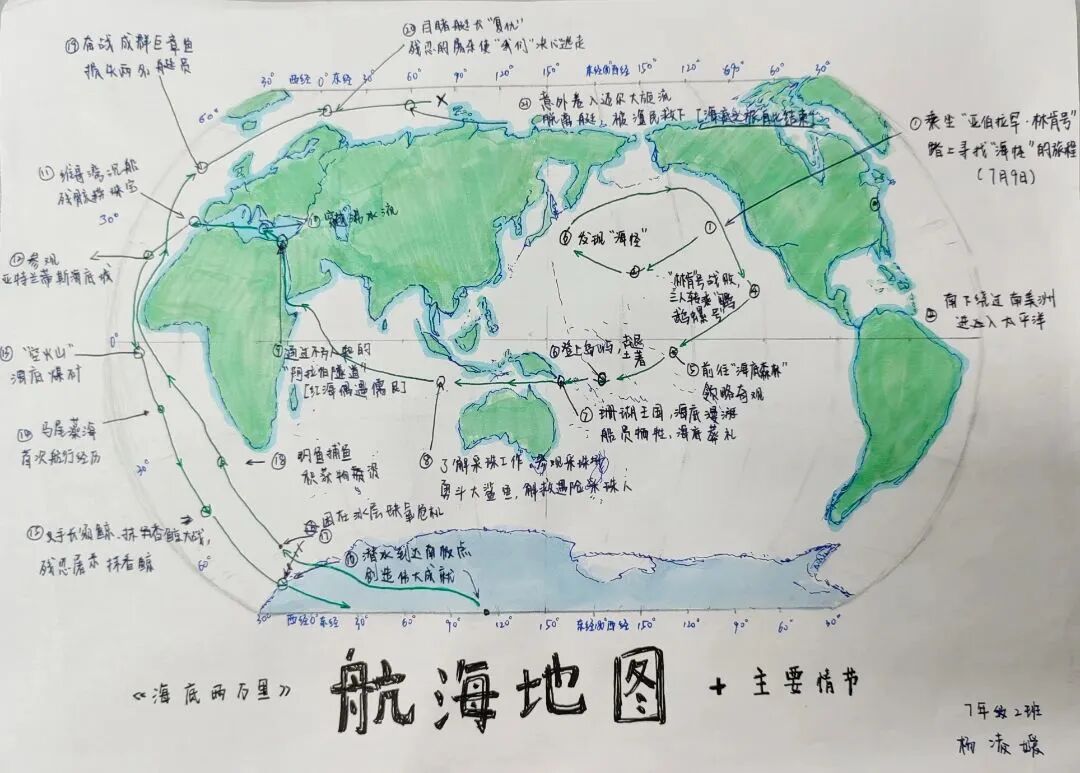 ⑲奋战成群巨章鱼
损失两名艇员
⑳目睹艇长"复仇"
残忍的屠杀使"我们"决心逃走
30° 西经0°东经 30° 60° 90° 120° 150° 东经180°西经 150° 120° 30°
60°
㉑ 意外卷入迈尔大旋流
脱离艇, 被渔民救下 [海底之旅有此结束]
①乘坐"亚伯拉罕·林肯号"
踏上寻找"海怪"的旅程
(7月9日)
⑪维哥湾沉船
30°
⑫参观
亚特兰蒂斯海底城
③发现"海怪"
①
④
"林肯"号战败,
三人转乘"鹦
鹉螺号"
南下绕过南美洲
进入太平洋
0°
⑥登上岛屿, 击退
土著
⑤前往"海底森林"
领略奇观
"空火山"
海底煤矿
⑨通过不为人知的
"阿拉伯隧道"
[红海偶遇儒艮]
⑦ 珊瑚王国, 海底漫游
船员牺牲, 海底葬礼
马尾藻海
首次航行经历
30°
⑧ 了解采珠工作, 参观采珠场
勇斗大鲨鱼, 解救遇险采珠人
⑱困在冰层 缺氧危机
⑰
⑯ 潜水到达南极点
创造伟大成就
⑮联手长须鲸、抹香鲸大战,
残忍屠杀抹香鲸
60°
30° 西经0°东经 30° 60° 90° 120° 150° 东经180°西经 150° 120° 90°
《海底两万里》 航海地图 + 主要情节
7年级2班
杨凌媛